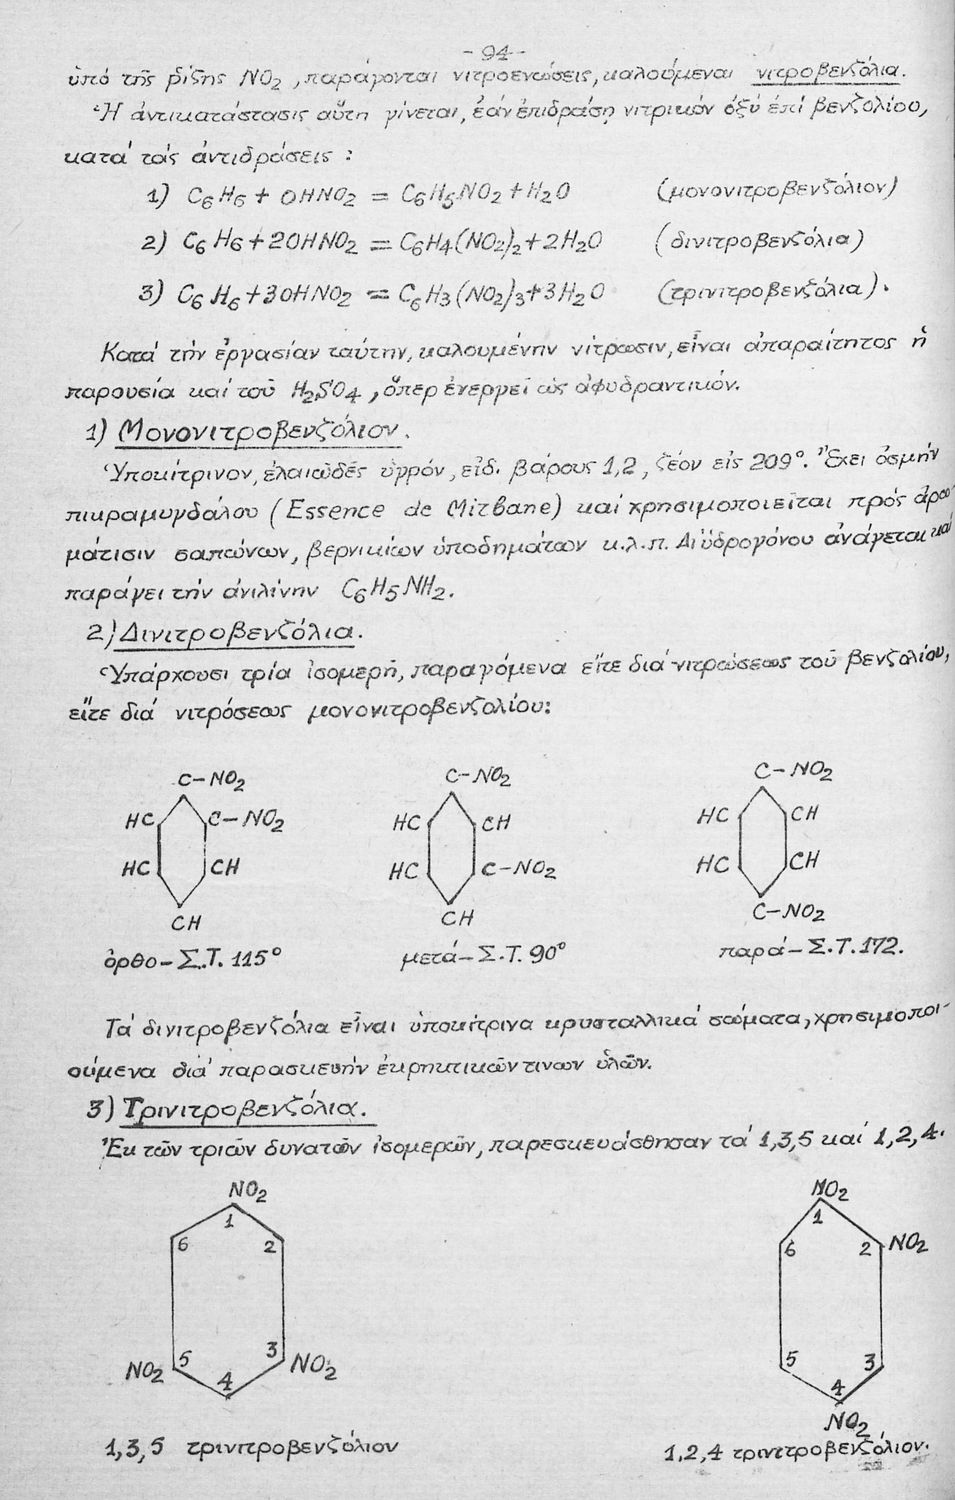 - 94 -
ὑπό τῆς ρίζης NO₂, παράγονται νιτροενώσεις, καλούμεναι νιτροβενζόλια.
Ἡ ἀντικατάστασις αὕτη γίνεται, ἐάν ἐπιδράσῃ νιτρικόν ὀξύ ἐπί βενζολίου,
κατά τάς ἀντιδράσεις :
1) C₆H₆ + OHNO₂ = C₆H₅NO₂ + H₂O (μονονιτροβενζόλιον)
2) C₆H₆ + 2OHNO₂ = C₆H₄(NO₂)₂ + 2H₂O (δινιτροβενζόλια)
3) C₆H₆ + 3OHNO₂ = C₆H₃(NO₂)₃ + 3H₂O (τρινιτροβενζόλια).
Κατά τήν ἐργασίαν ταύτην, καλουμένην νίτρωσιν, εἶναι ἀπαραίτητος ἡ
παρουσία καί τοῦ H₂SO₄, ὅπερ ἐνεργεῖ ὡς ἀφυδραντικόν.
1) Μονονιτροβενζόλιον.
Ὑποκίτρινον, ἐλαιῶδές ὑγρόν, εἰδ. βάρους 1,2, ζέον εἰς 209°. Ἔχει ὀσμήν
πικραμυγδάλου (Essence de Mirbane) καί χρησιμοποιεῖται πρός ἀρω-
μάτισιν σαπώνων, βερνικίων ὑποδημάτων κ.λ.π. Δι' ὑδρογόνου ἀνάγεται καί
παράγει τήν ἀνιλίνην C₆H₅NH₂.
2) Δινιτροβενζόλια.
Ὑπάρχουσι τρία ἰσομερῆ, παραγόμενα εἴτε διά νιτρώσεως τοῦ βενζολίου,
εἴτε διά νιτρόσεως μονονιτροβενζολίου:
C-NO₂ C-NO₂ C-NO₂
HC C-NO₂ HC CH HC CH
HC CH HC C-NO₂ HC CH
CH CH C-NO₂
ὀρθο-Σ.Τ. 115° μετά-Σ.Τ. 90° παρά-Σ.Τ. 172.
Τά δινιτροβενζόλια εἶναι ὑποκίτρινα κρυσταλλικά σώματα, χρησιμοποι-
ούμενα διά παρασκευήν ἐκρηκτικῶν τινων ὑλῶν.
3) Τρινιτροβενζόλια.
Ἐκ τῶν τριῶν δυνατῶν ἰσομερῶν, παρεσκευάσθησαν τά 1,3,5 καί 1,2,4.
NO₂ NO₂
1 1
6 2 6 2 NO₂
5 3 5 3
NO₂ 4 NO₂ 4
NO₂
1,3,5 τρινιτροβενζόλιον 1,2,4 τρινιτροβενζόλιον.